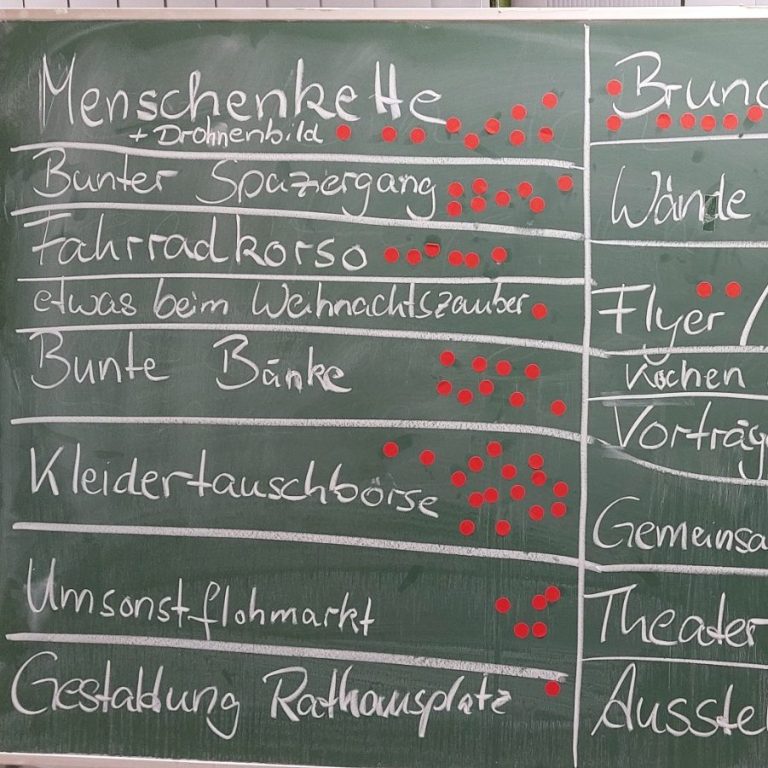 Menschenkette
+ Drohnenbild
Bunter Spaziergang
Fahrradkorso
etwas beim Weihnachtszauber
Bunte Bänke
Kleidertauschbörse
Umsonstflohmarkt
Gestaldung Rathausplatz
Brunc
Wände
Flyer /
Kochen
Vorträg
Gemeinsa
Theater
Ausstel